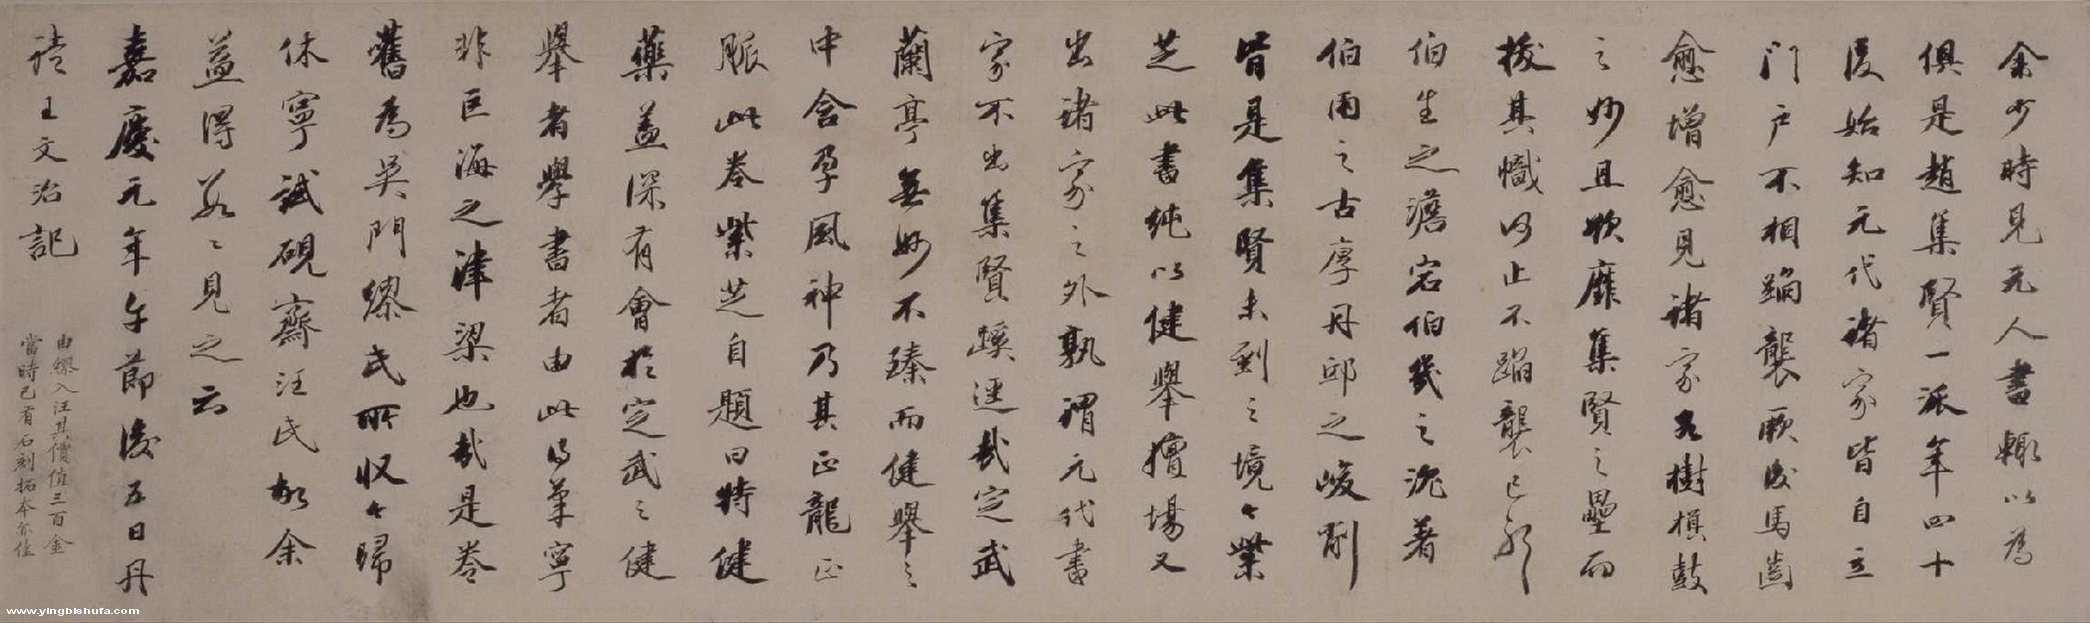 余少時見元人書輒以為
俱是趙集賢一派年四十
後始知元代諸家皆自立
門戶不相蹈襲厥後馬齒
愈增愈見諸家各樹旗鼓
之妙且欲靡集賢之壘而
拔其幟何止不蹈襲已耶
伯生之澹宕伯幾之沉著
伯雨之古厚丹邱之峻削
皆是集賢未到之境々紫
芝此書純以健舉擅場又
出諸家之外孰謂元代書
家不出集賢蹊逕哉定武
蘭亭無妙不臻而健舉之
中含孕風神乃其正龍正
脈此卷紫芝自題曰特健
藥蓋深有會於定武之健
舉者學書者由此得筆寧
非巨海之津梁也哉是卷
舊為吳門繆氏所收今歸
休寧試硯齋汪氏故余
益得數々見之云
嘉慶元年午節後五日丹
徒王文治記
由繆入汪其價值三百金
當時已有石刻拓本亦佳
www.yingbishufa.com